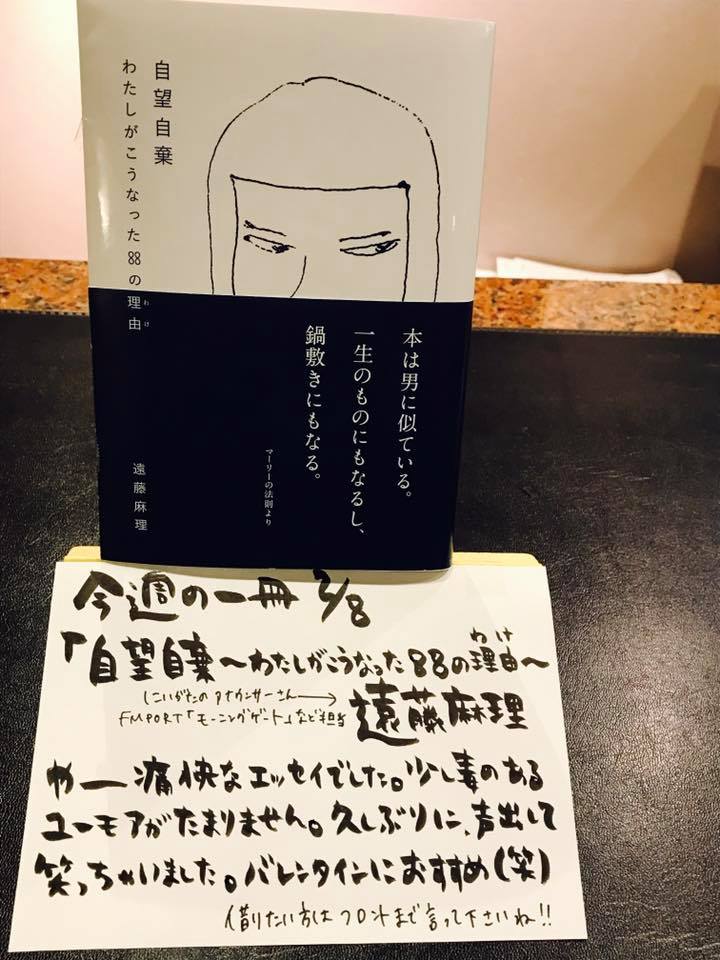 自望自棄
わたしがこうなった88の理由
わけ
遠藤麻理
本は男に似ている。
一生のものにもなるし、
鍋敷きにもなる。
マーリーの法則より
今週の一冊 2/8
「自望自棄〜わたしがこうなった88の理由〜
わけ
にいがたのアナウンサーさん→
FMPORT「モーニングゲート」など担当
遠藤麻理
やー痛快なエッセイでした。少し毒のある
ユーモアがたまりません。久しぶりに、声出して
笑っちゃいました。バレンタインにおすすめ(笑)
借りたい方はフロントまで言って下さいね!!